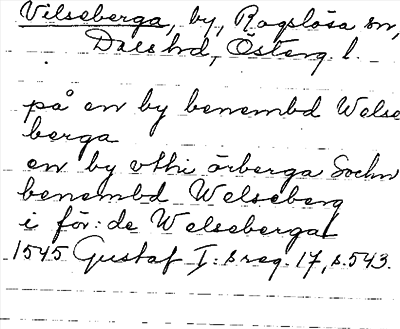 Vilseberga, by, Rogslösa sn,
Dals hd, Österg. l.
på en by benembd Welse
berga
en by vthi örberga Sochn
benembd Welseberg
i för: de Welseberga
1545 Gustaf I: s reg. 17, s. 543.